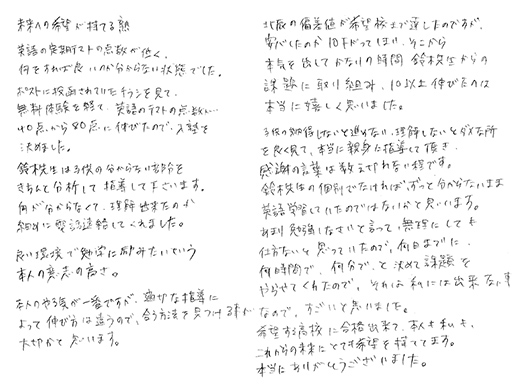 未来への希望が持てる塾
英語の定期テストの点数が低く、
何をすれば良いのか分からない状態でした。
ポストに投函されていたチラシを見て、
無料体験を経て、英語のテストの点数が
40点から80点に伸びたので、入塾を
決めました。
鈴枝先生は子供の分からない部分を
きちんと分析して指導して下さいます。
何が分からなくて、理解出来たのか
細かに電話連絡してくれました。
良い環境で勉学に励みたいという
本人の意志の高さ。
本人のやる気が一番ですが、適切な指導に
よって伸び方は違うので、合う方法を見つける事が
大切かと思います。
北辰の偏差値が希望校まで達したのですが、
安心したのか10下がってしまい、そこから
本気を出してかなりの時間、鈴枝先生からの
課題に取り組み、10以上伸びたのは
本当に嬉しく思いました。
子供の勉強しないと進めない、理解しないとダメな所
を良く見て、本当に親身な指導をして頂き、
感謝の言葉は数え切れない程です。
鈴枝先生の個別でなければ、ずっと分からないまま
英語学習していたのではないかと思います。
勉強しなさいと言って、無理にしても
仕方ないと思っていたので、何日までに、
何時間で、何分で、と決めて課題を
やらせてくれたので、それは私には出来ない事
なので、すごいと思いました。
希望する高校に合格出来て、本人も私も、
これからの未来にとても希望を持ててます。
本当にありがとうございました。